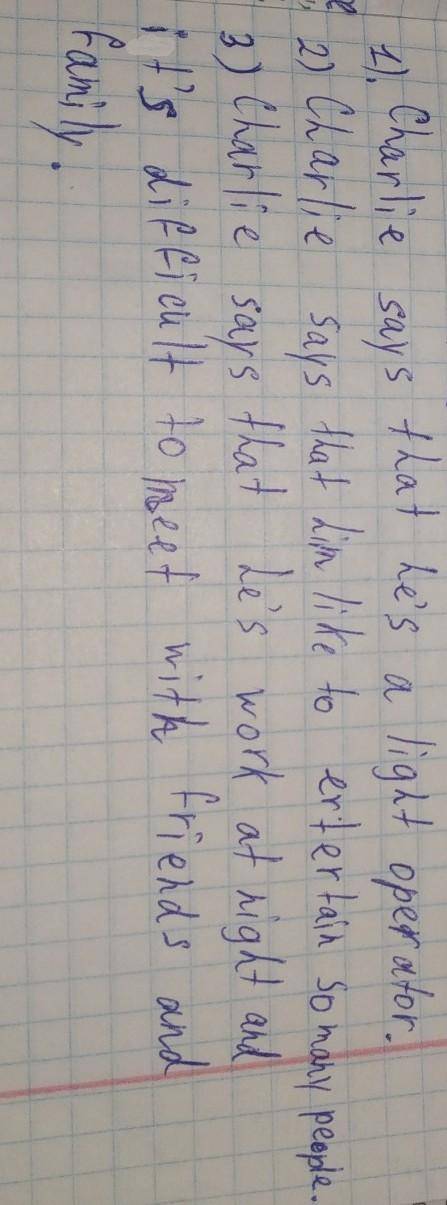 1). Charlie says that he's a light operator.
2) Charlie says that him like to entertain so many people.
3) Charlie says that he's work at night and
it's difficult to meet with friends and
family.